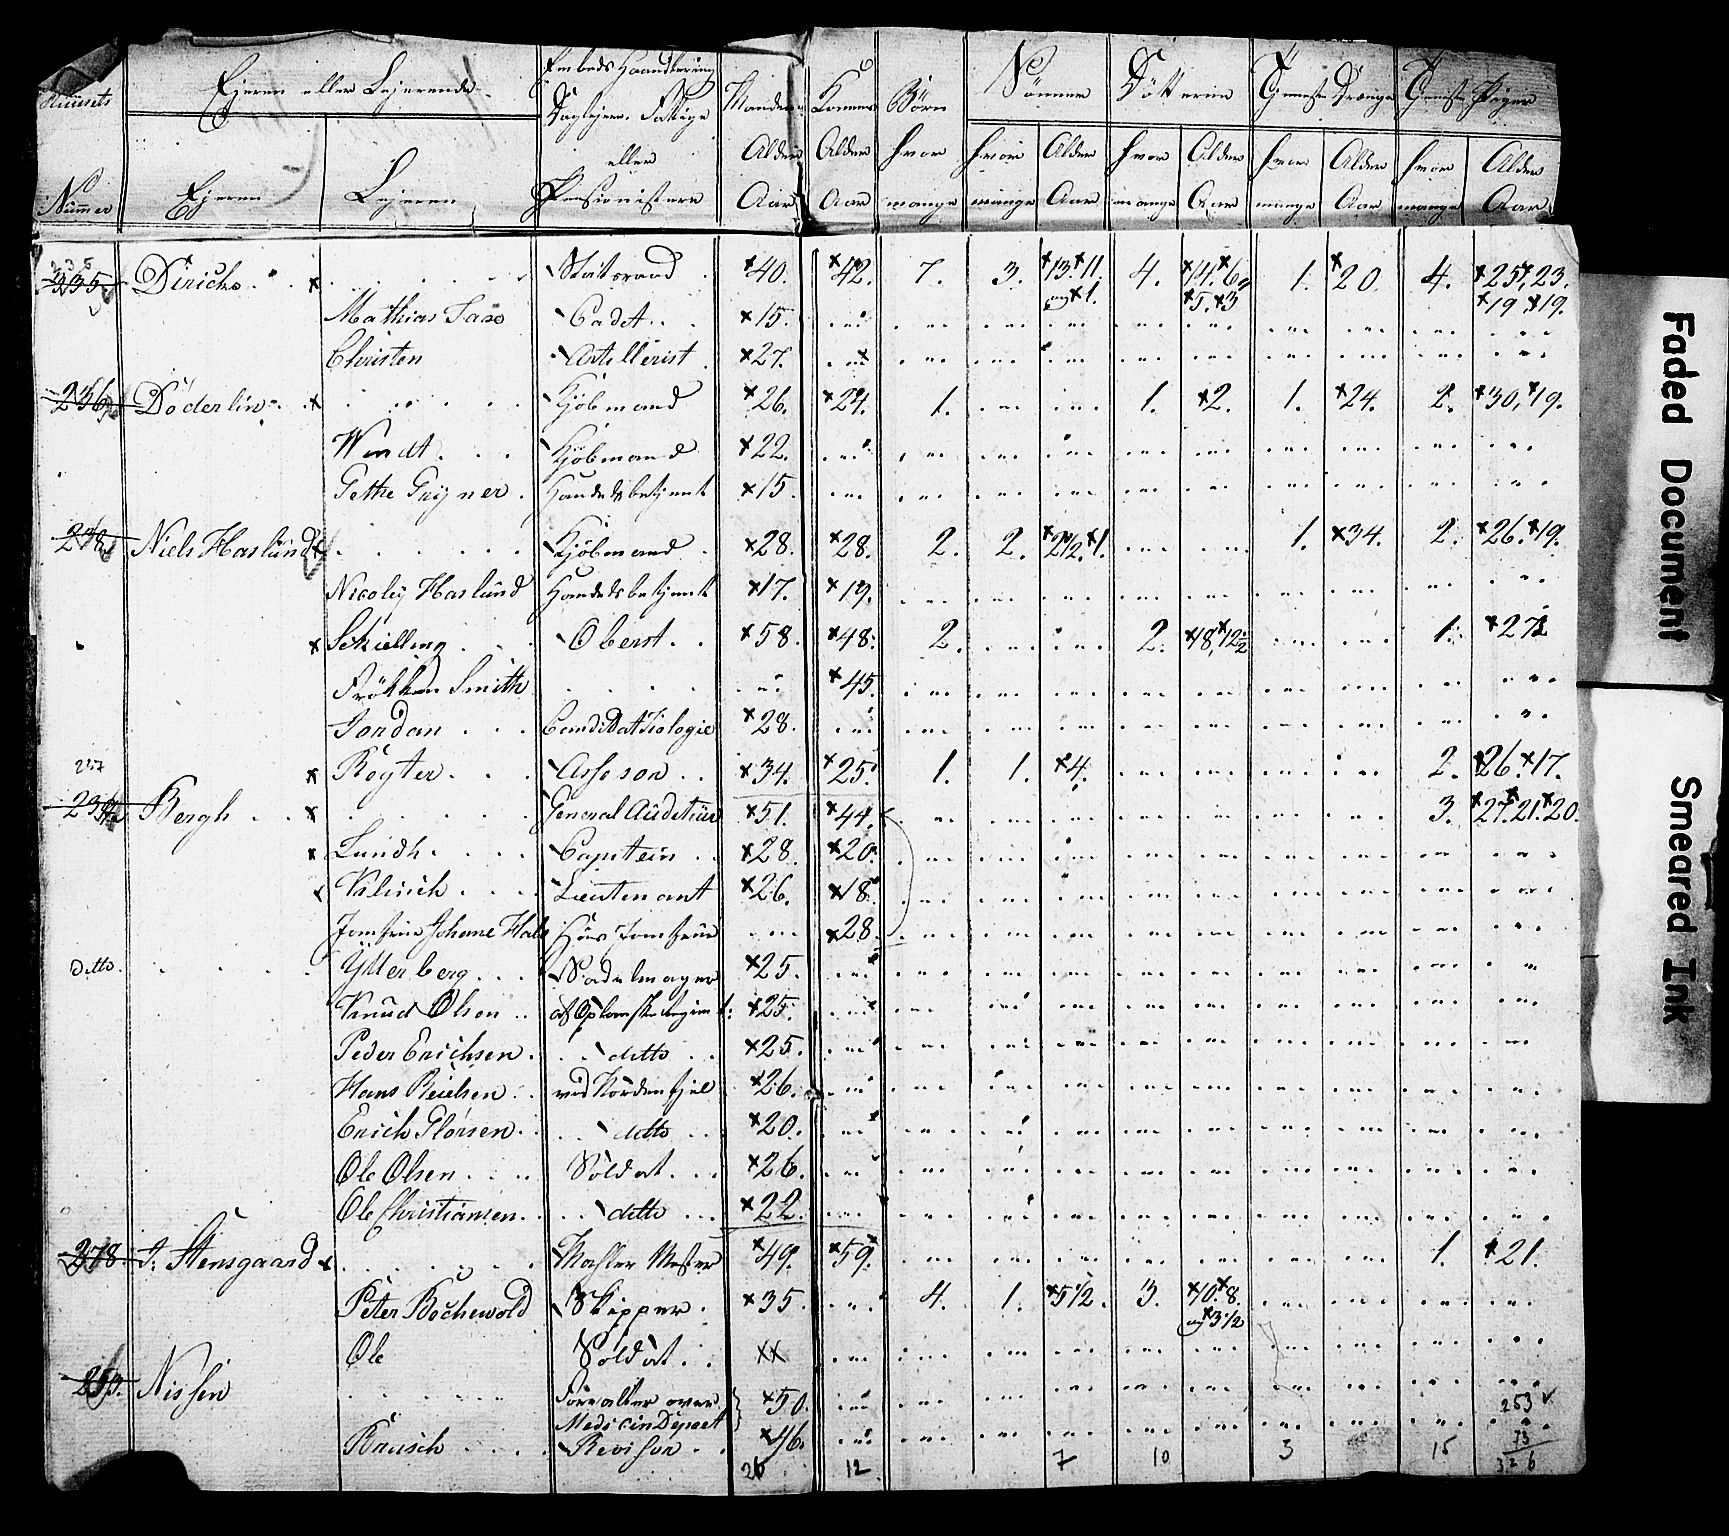 Huusets Nummer
Ejeren eller Lejerende
Ejeren
Lejeren
Embeds Haandtering Daglejere, Fattige eller Pensionistere
Mandens Alder Aar
Konens Alder Aar
Börn hvor mange
Sönner
hvor mange
Alder Aar
Döttrene
hvor mange
Alder Aar
Tjeneste Drænge
hvor mange
Alder Aar
Tjeneste Piger
hvor mange
Alder Aar
235 Dirichs Statsraad 40. 42. 7. 3. 13. 11. og 1. 4. 14. 6. 5. 3 1. 20. 4. 25, 23. 19. 19.
Mathias Cadet 15.
Christen Artillerist 27.
236 Döderlin Kjöbmand 26. 24. 1. 1. 2. 1. 24. 2. 30, 19.
Wendt Kjöbmand 22.
Handelsbetjent 15.
Niels Haslund Kjöbmand 28. 28. 2. 2. 2 1/2. 1. 1. 34. 2. 26. 19.
Nicolej Haslund Handelsbetjent 17. 19.
Schielling Oberst 58. 48. 2. 2. 18, 12 1/2 1. 27
Fröhken Smith 45.
Jordan Candidat Tiologie 28.
237
Röyter Assesor 34. 25. 1. 1. 4. 2. 26. 17.
Bergh General Auditeur 51. 44. 3. 27. 21. 20.
Lundh Capitein 28. 20.
Lieutenant 26. 18.
Jomfrue Johane Huus Jomfrue 28.
Ditto.
Ytterberg Sadelmager 25.
Knud Olsen 25.
Peder Erichsen ditto 25.
Hans ved Nordenfjel 26.
Erich ditto 20.
Ole Olsen Soldat 26.
Ole Christiansen ditto 22.
J. Stensgaard Mahler Mester 49. 59. 1. 21.
Peter Bochewold Skipper 35. 4. 1. 5 1/2. 3. 10. 8. og 3 1/2
Ole Soldat xx
Nissen Forvalter over Medicin Depoet 50.
Brusch Revisor 46.
26 12 7 10 3 15
253
73
326
Faded Document
Smeared Ink